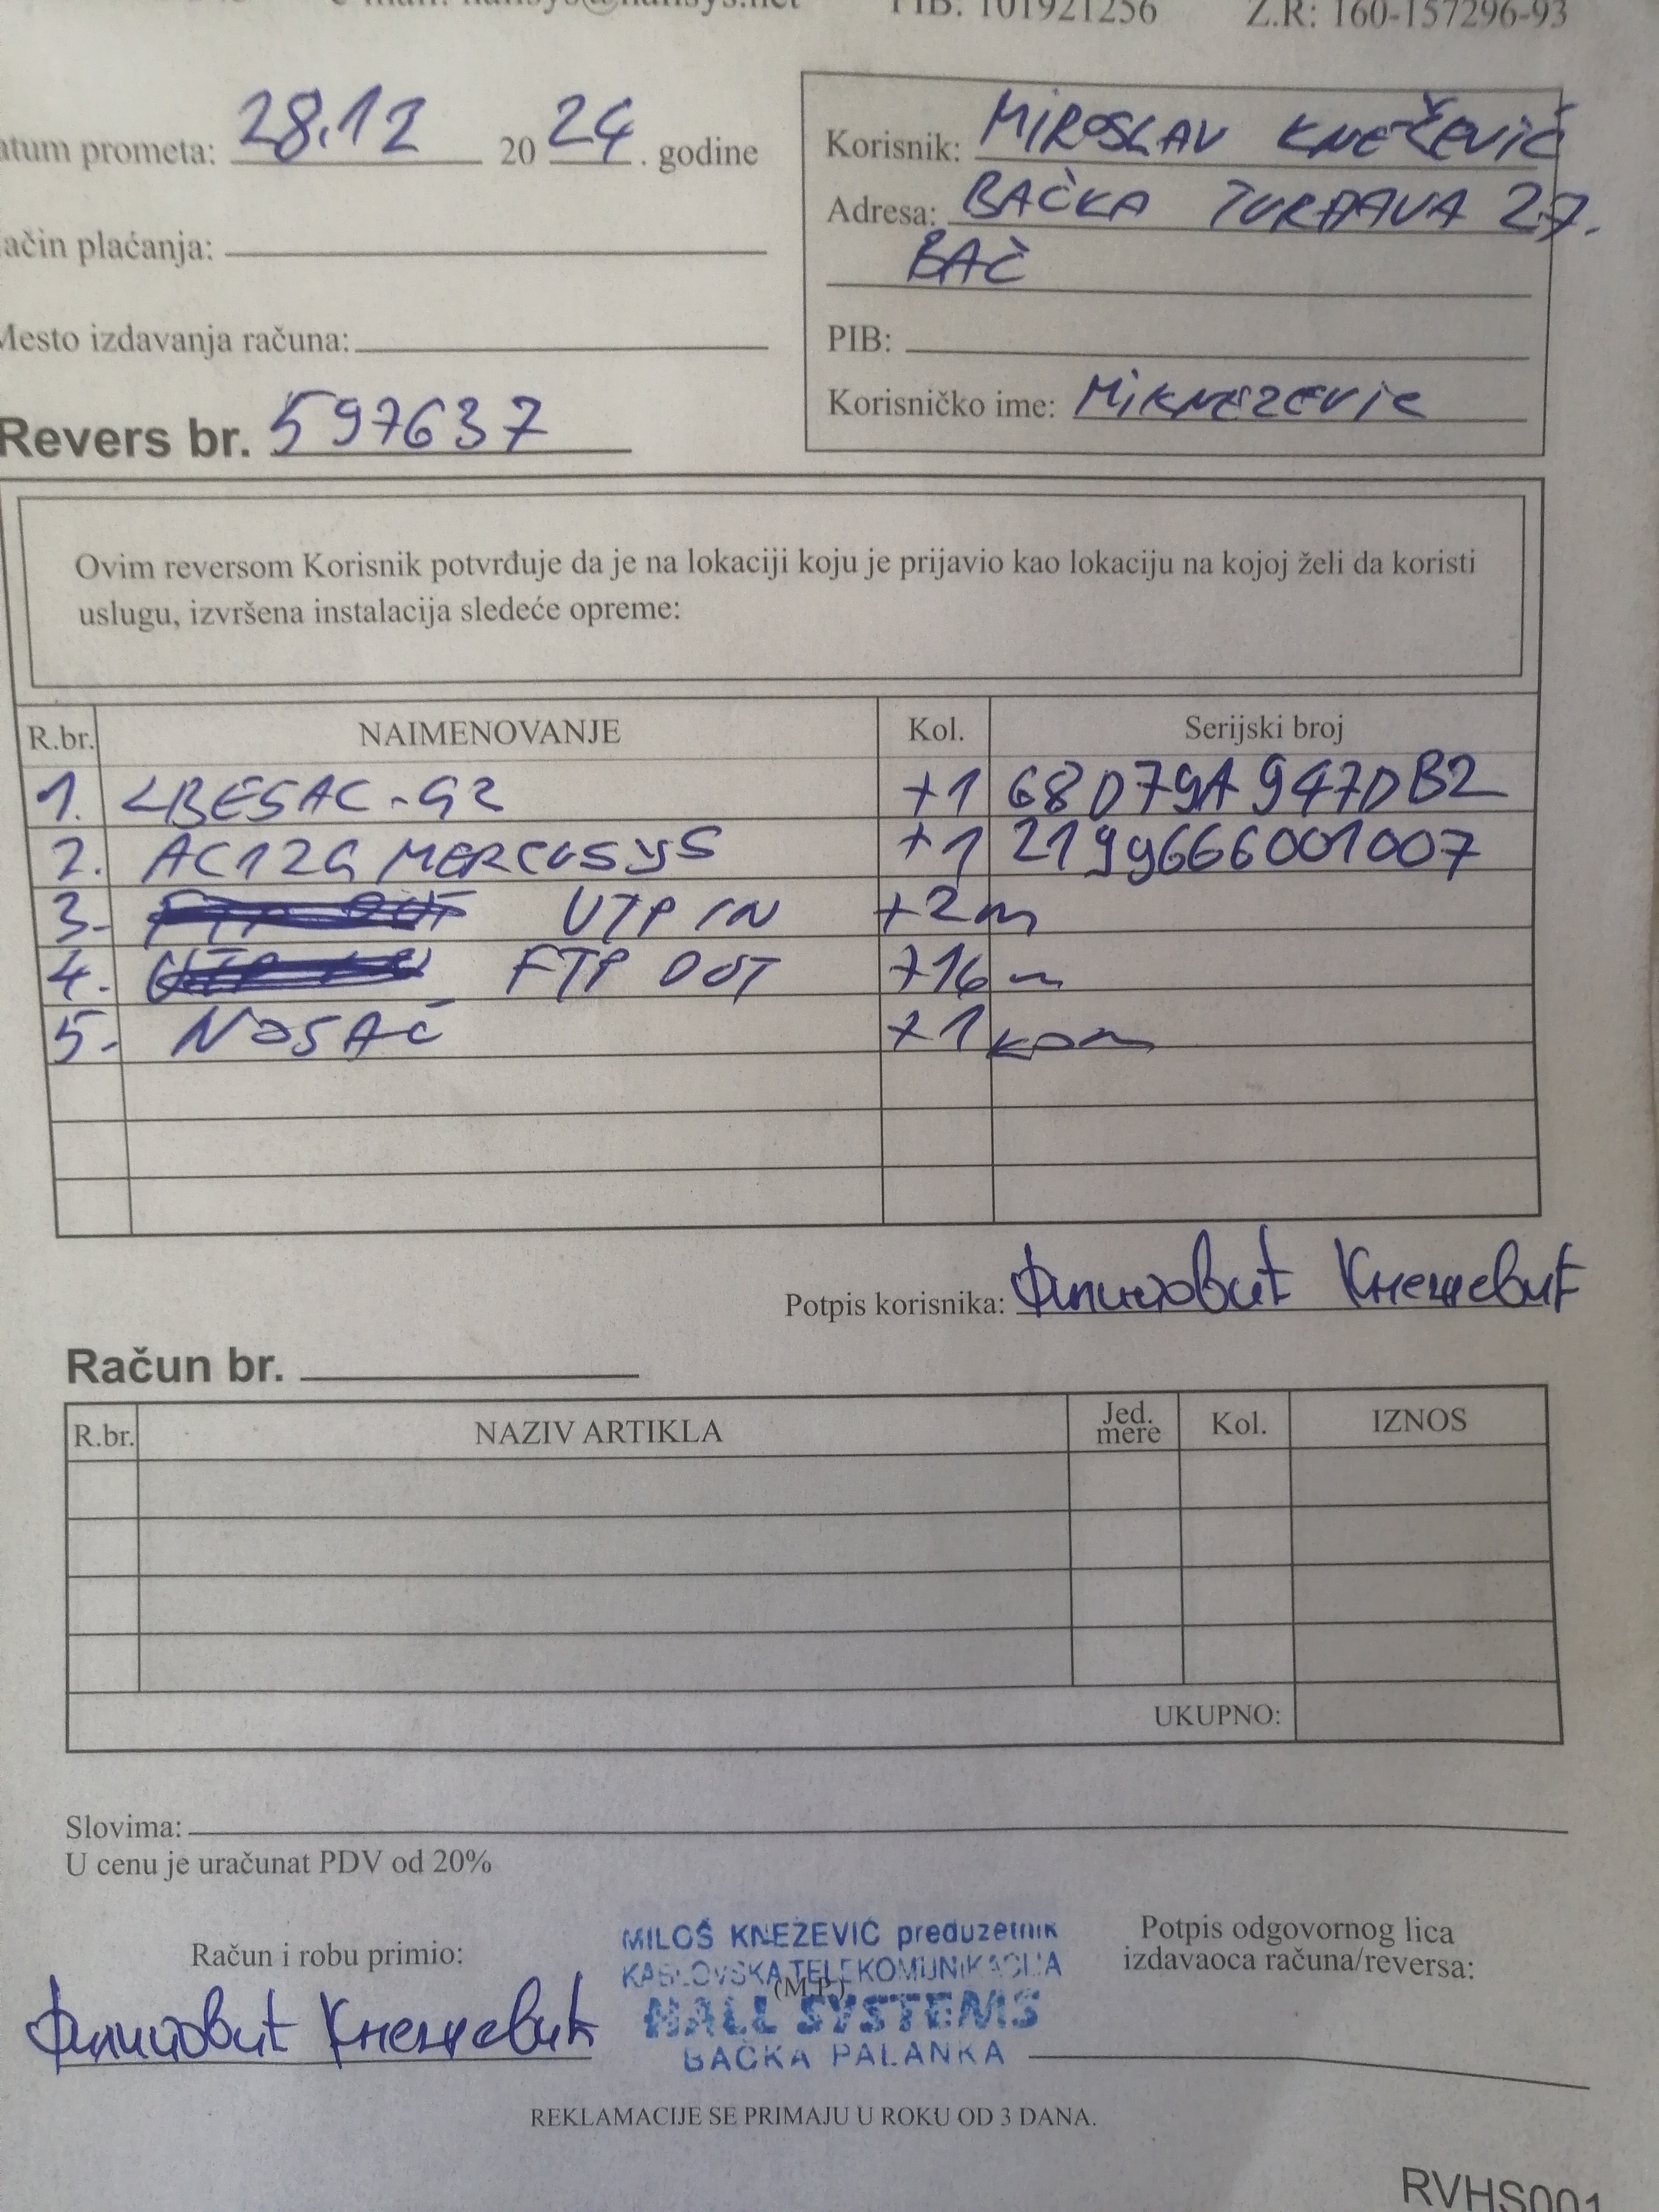 PIB: 101921256 Z.R: 160-157296-93
atum prometa: 28.12 2024. godine
Korisnik: MIROSLAV KNEČEVIČ
Adresa: BAČKA TVRĐAVA 27.
BAČ
ačin plaćanja:
Mesto izdavanja računa:
PIB:
Korisničko ime: MiKNEZEVic
Revers br. 597637
Ovim reversom Korisnik potvrđuje da je na lokaciji koju je prijavio kao lokaciju na kojoj želi da koristi
uslugu, izvršena instalacija sledeće opreme:
R.br. NAIMENOVANJE Kol. Serijski broj
1. LBE5AC-G2 +1 68D79A947DB2
2. AC12G MERCUSYS +1 2199666001007
3. UTP IN +2m
4. FTP OUT +16 m
5. NOSAČ +1 kom
Potpis korisnika: Филиповић Кнежевић
Račun br.
R.br. NAZIV ARTIKLA Jed. mere Kol. IZNOS
UKUPNO:
Slovima:
U cenu je uračunat PDV od 20%
Račun i robu primio:
Филиповић Кнежевић
MILOŠ KNEŽEVIĆ preduzetnik
KABLOVSKA TELEKOMUNIKACIJA
(M.P.)
HALL SYSTEMS
BAČKA PALANKA
Potpis odgovornog lica
izdavaoca računa/reversa:
REKLAMACIJE SE PRIMAJU U ROKU OD 3 DANA.
RVHS001